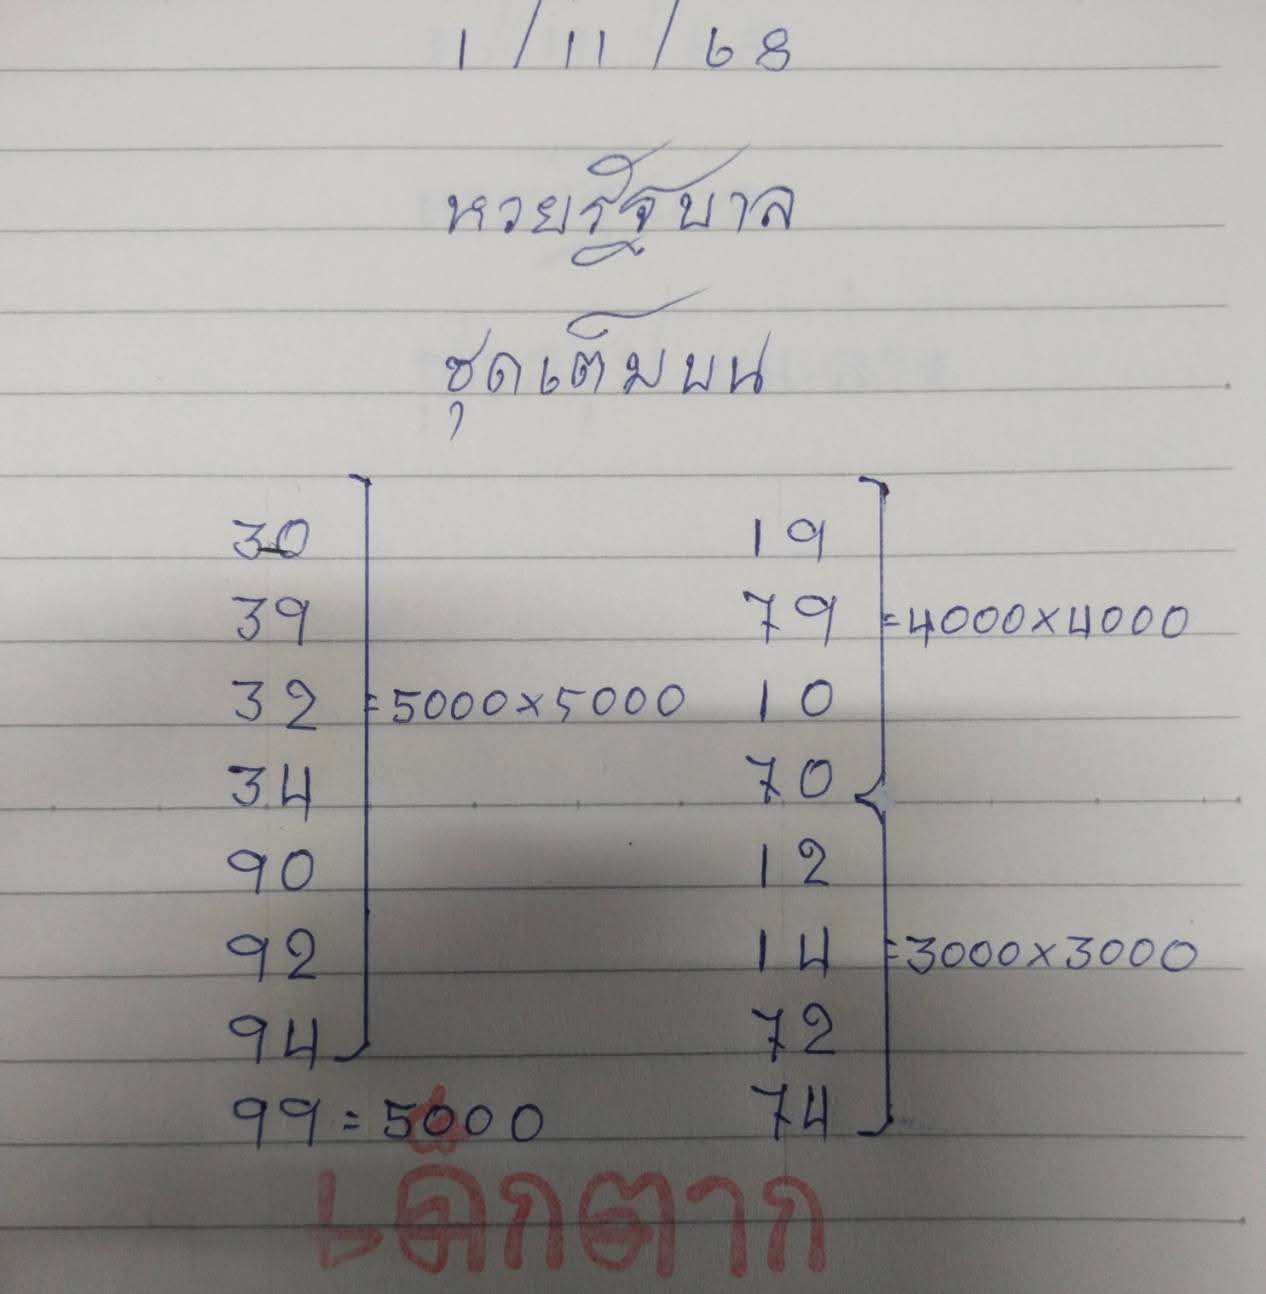 1/11/68
หวยรัฐบาล
ชุดเต็มบน
30
39
32 = 5000×5000
34
90
92
94
99 = 5000
19
79 = 4000×4000
10
70
12
14 = 3000×3000
72
74
เด็กตาก